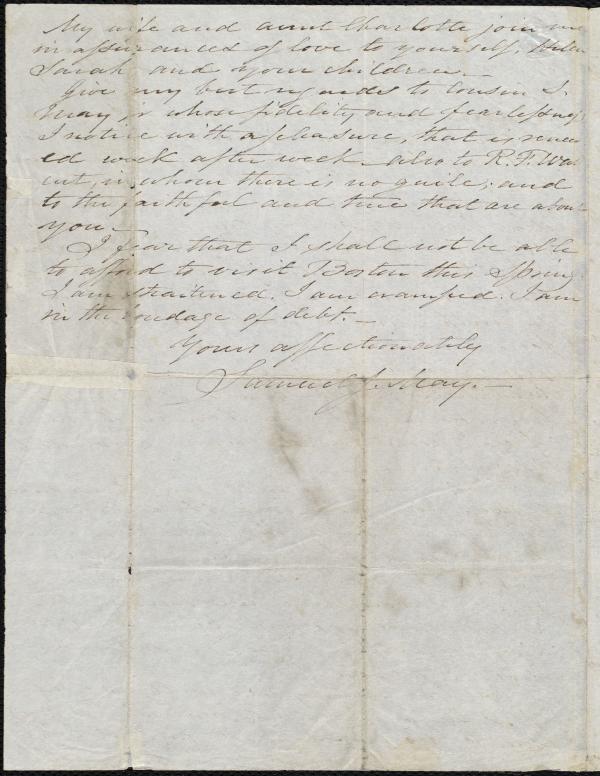 My wife and aunt Charlotte join me
in assurances of love to yourself, Helen
Sarah and your children.—
Give my best regards to cousin S.
May jr whose fidelity and fearlessness
I notice with a pleasure, that is renew
ed week after week—also to R. F. Wal
cut, in whom there is no guile; and
to the faithful and true that are about
you—
I fear that I shall not be able
to afford to visit Boston this Spring
I am straitened. I am cramped. I am
in the bondage of debt.—
Yours affectionately
Samuel J. May.—